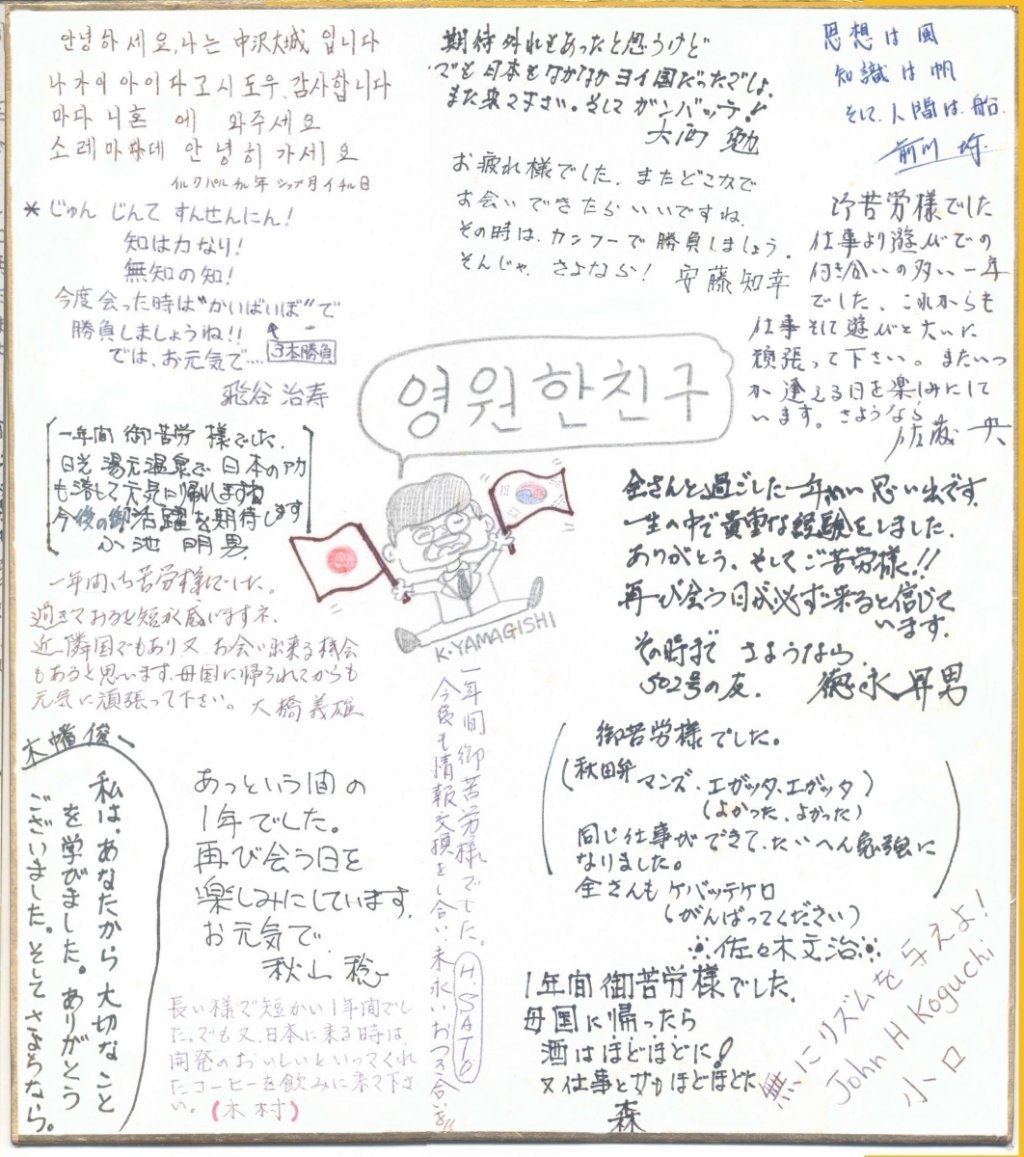 안녕하세요, 나는 中沢大城 입니다
나가이 아이다 고시도우, 감사합니다
마다 니혼 에 와주세요
소레마와데 안녕히 가세요
イルクパルチル年 シップ月イチル日
* じゅん じんて すんせんにん!
知は力なり!
無知の知!
今度会った時は"かいばいぼ"で
勝負しましょうね!!
3本勝負
では、お元気で....
飛谷 治寿
期待外れもあったと思うけど
でも日本もなかなかヨイ国だったでしょ
また来て下さい。そして ガンバッテ!
大西 勉
お疲れ様でした. またどこかで
お会いできたらいいですね.
その時は、カンフーで勝負しましょう.
そんじゃ、さよなら! 安藤知幸
思想は風
知識は帆
そして、人間は、船.
前川
御苦労様でした
仕事より遊びでの
付き合いの多い一年
でした、これからも
仕事そして遊びと大いに
頑張って下さい。またいつ
か逢える日を楽しみにして
います。さようなら
佐藤 央
영원한친구
K.YAMAGISHI
一年間 御苦労様でした.
日光湯元温泉で日本のアカ
も落して元気に帰れますね
今後の御活躍を期待します
小池 明男
一年間、ご苦労様でした。
過ぎてみると短かく感じますネ.
近隣国でもあり又、お会い出来る機会
もあると思います.母国に帰られてからも
元気に頑張って下さい。 大橋義雄
金さんと過ごした一年がいい思い出です
一生の中で貴重な経験をしました.
ありがとう. そしてご苦労様!!
再び会う日が必ず来ると信じて
います.
その時まで さようなら.
502号の友. 徳永昇男
木幡俊一
私は、あなたから大切なこと
を学びました。ありがとう
ございました。そしてさようなら。
あっという間の
1年でした。
再び会う日を
楽しみにしています.
お元気で.
秋山 稔
一年間御苦労様でした。
今後も情報交換をし合い末永いおつき合いを!!
H.SATO
御苦労様でした。
(秋田弁 マンズ、エガッタ、エガッタ)
(よかった、よかった)
同じ仕事ができて、たいへん勉強に
なりました。
金さんも ケバッテケロ
(がんばってください)
佐々木文治
長い様で短かい1年間でし
た。でも又、日本に来る時は、
開発のおいしいといってくれ
たコーヒーを飲みに来て下さ
い。(木村)
1年間御苦労様でした.
母国に帰ったら
酒はほどほどに!
又仕事と女もほどほどに
森
無にリズムを与えよ!
John H Koguchi
小口